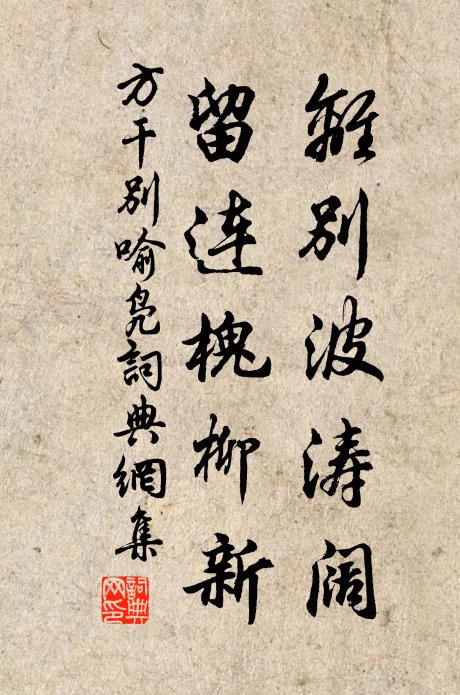 離別波濤闊
留連槐柳新
方干別喻鳧詞典網集
詞典網印